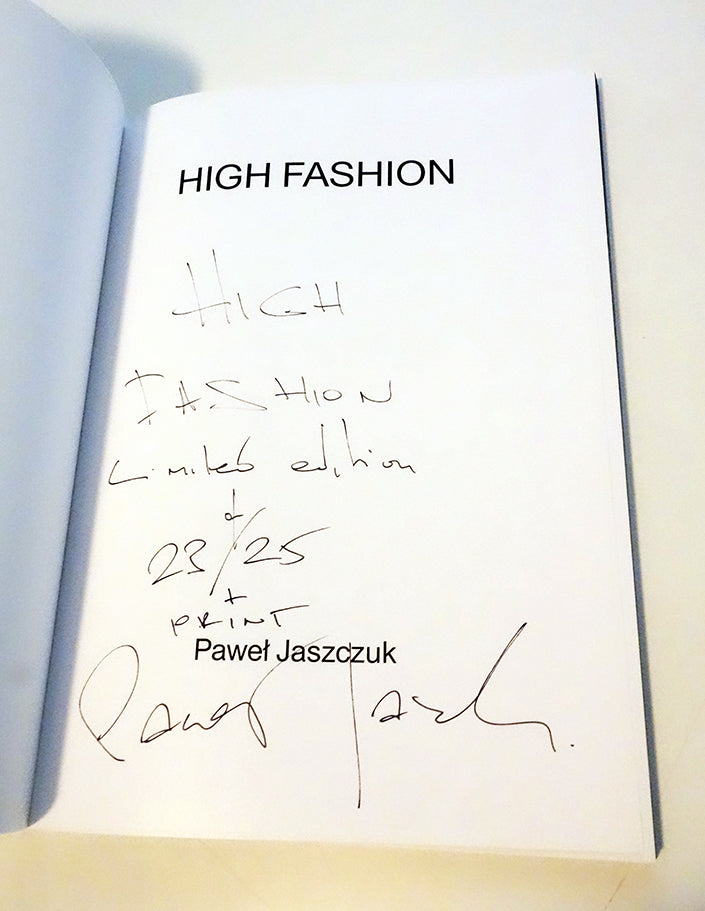 HIGH FASHION
HIGH
FASHION
Limited edition
23/25
+
PRINT
Paweł Jaszczuk
Paweł